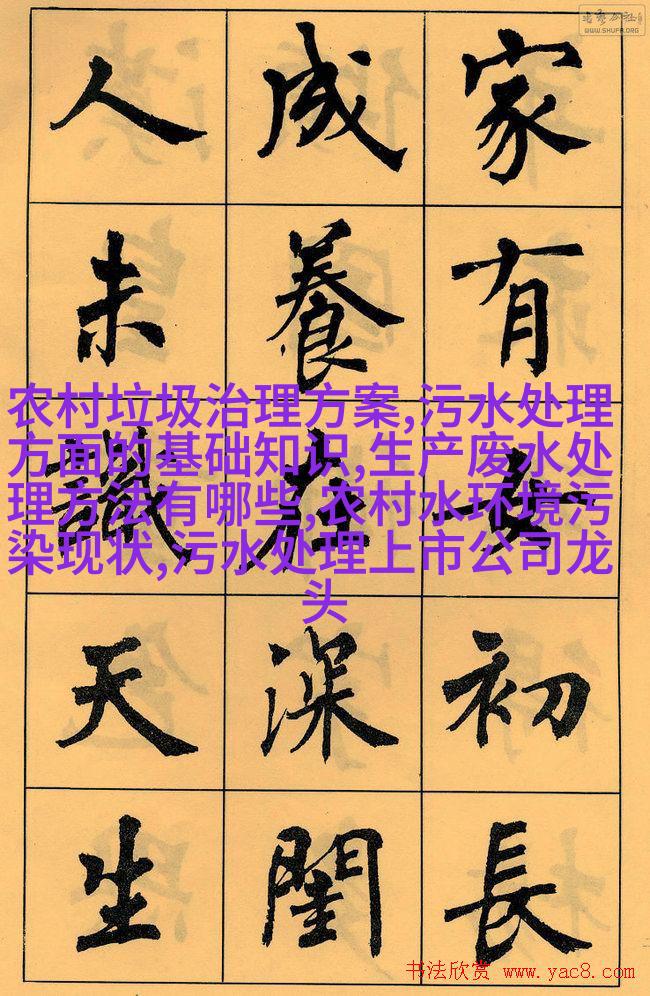 WWW.SHUFA.ORG
家有女初長
成養在深閨
人未識天生
农村垃圾治理方案,污水处理
方面的基础知识,生产废水处
理方法有哪些,农村水环境污
染现状,污水处理上市公司龙
头
书法欣赏 www.yac8.com